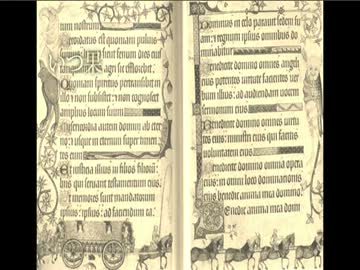 tum nostrum
Recordatus est quoniam pulvis
sic efflorebit
Quoniam spiritus pertransibit in
illo et non subsistet: et non cognoscet
amplius locum suum
Misericordia autem domini ab eter
no: et usque in eternum super timen
tes eum
Et iusticia illius in filios filiorum:
his qui servant testamentum eius
Et memores sunt mandatorum
ipsius: ad faciendum ea
Dominus in celo paravit sedem su
am: et regnum ipsius omnibus do
minabitur
Benedicite domino omnes angeli
eius potentes virtute facientes ver
bum illius: ad audiendam vocem
sermonum eius
Benedicite domino omnes virtu
tes eius: ministri eius qui facitis
voluntatem eius
Benedicite domino omnia opera
eius: in omni loco dominationis
eius benedic anima mea domino
Benedic anima mea domi